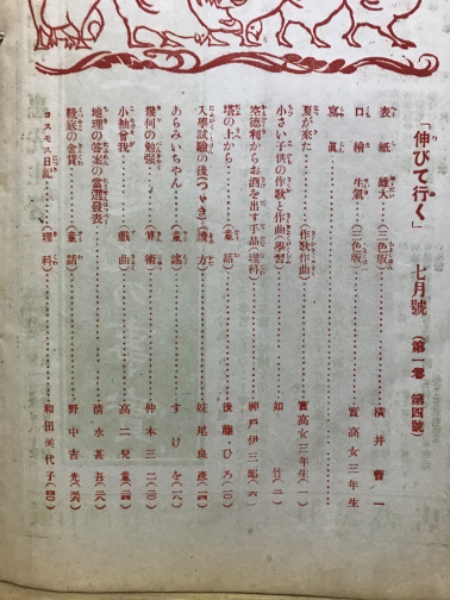 「伸びて行く」 七月號 (第一卷 第四號)
表紙 雄大 (三色版) 橫井曹一
口繪 生氣 (二色版) 實高女三年生
寫眞
夏が來た (作歌作曲) 實高女三年生(一)
小さい子供の作歌と作曲(學習) 如竹(二)
空德利からお酒を出す手品(理科) 神戶伊三郞(六)
塔の上から (童話) 後藤・ひろ(一〇)
入學試驗の後(つゞき)(讀方) 妹尾良彥(一四)
あらみいちゃん (童謠) すけを(一八)
幾何の勉强 (算術) 仲本三二(二〇)
小袖曾我 (戲曲) 高二兒童(二四)
地理の答案の當選發表 淸水甚吾(三〇)
靴底の金貨 (童話) 野中吉光
コスモス日記 (理科) 和田美代子